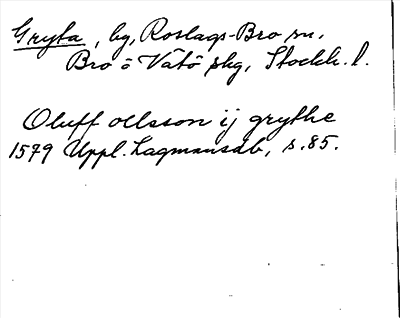 Gryta, by, Roslags-Bro sn,
Bro o Vätö skg, Stockh. l.
Oluff ollsson ij grythe
1579 Uppl. Lagmansdb, s. 85.